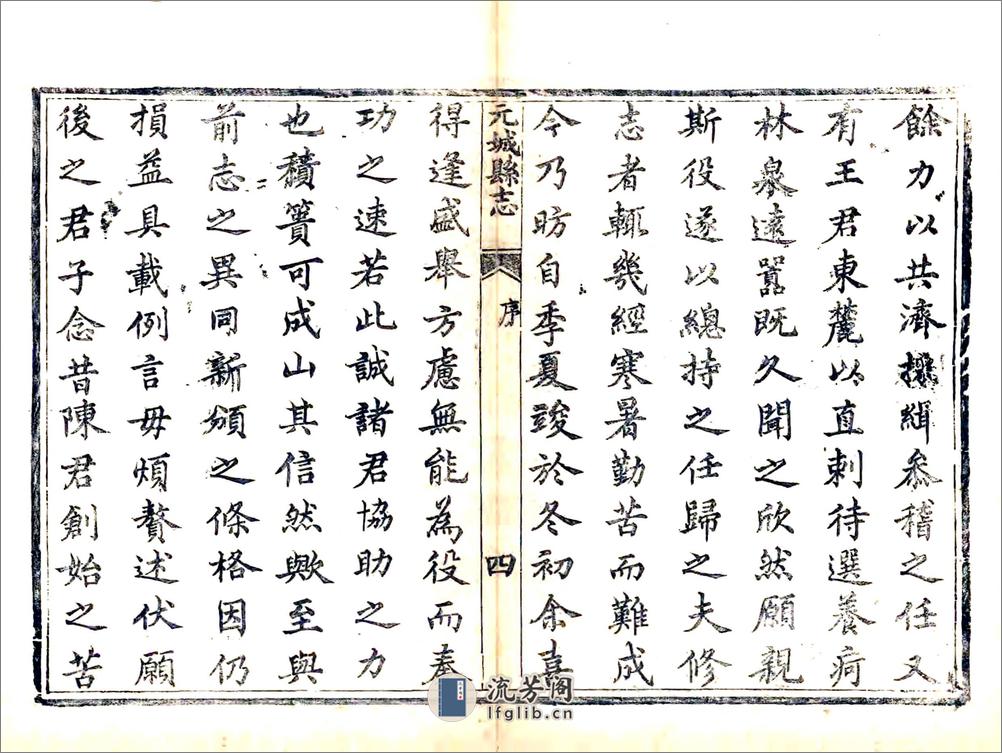 餘力以共濟撰緝叅稽之任又
有王君東麓以直刺待選養疴
林泉遠囂旣久聞之欣然願親
斯役遂以總持之任歸之夫修
志者輒幾經寒暑勤苦而難成
今乃昉自季夏竣於冬初余喜
元城縣志
序
四
得逢盛舉方慮無能為役而奏
功之速若此誠諸君協助之力
也積簣可成山其信然歟至與
前志之異同新頒之條格因仍
損益具載例言毋煩贅述伏願
後之君子念昔陳君創始之苦
流芳阁
lfglib.cn